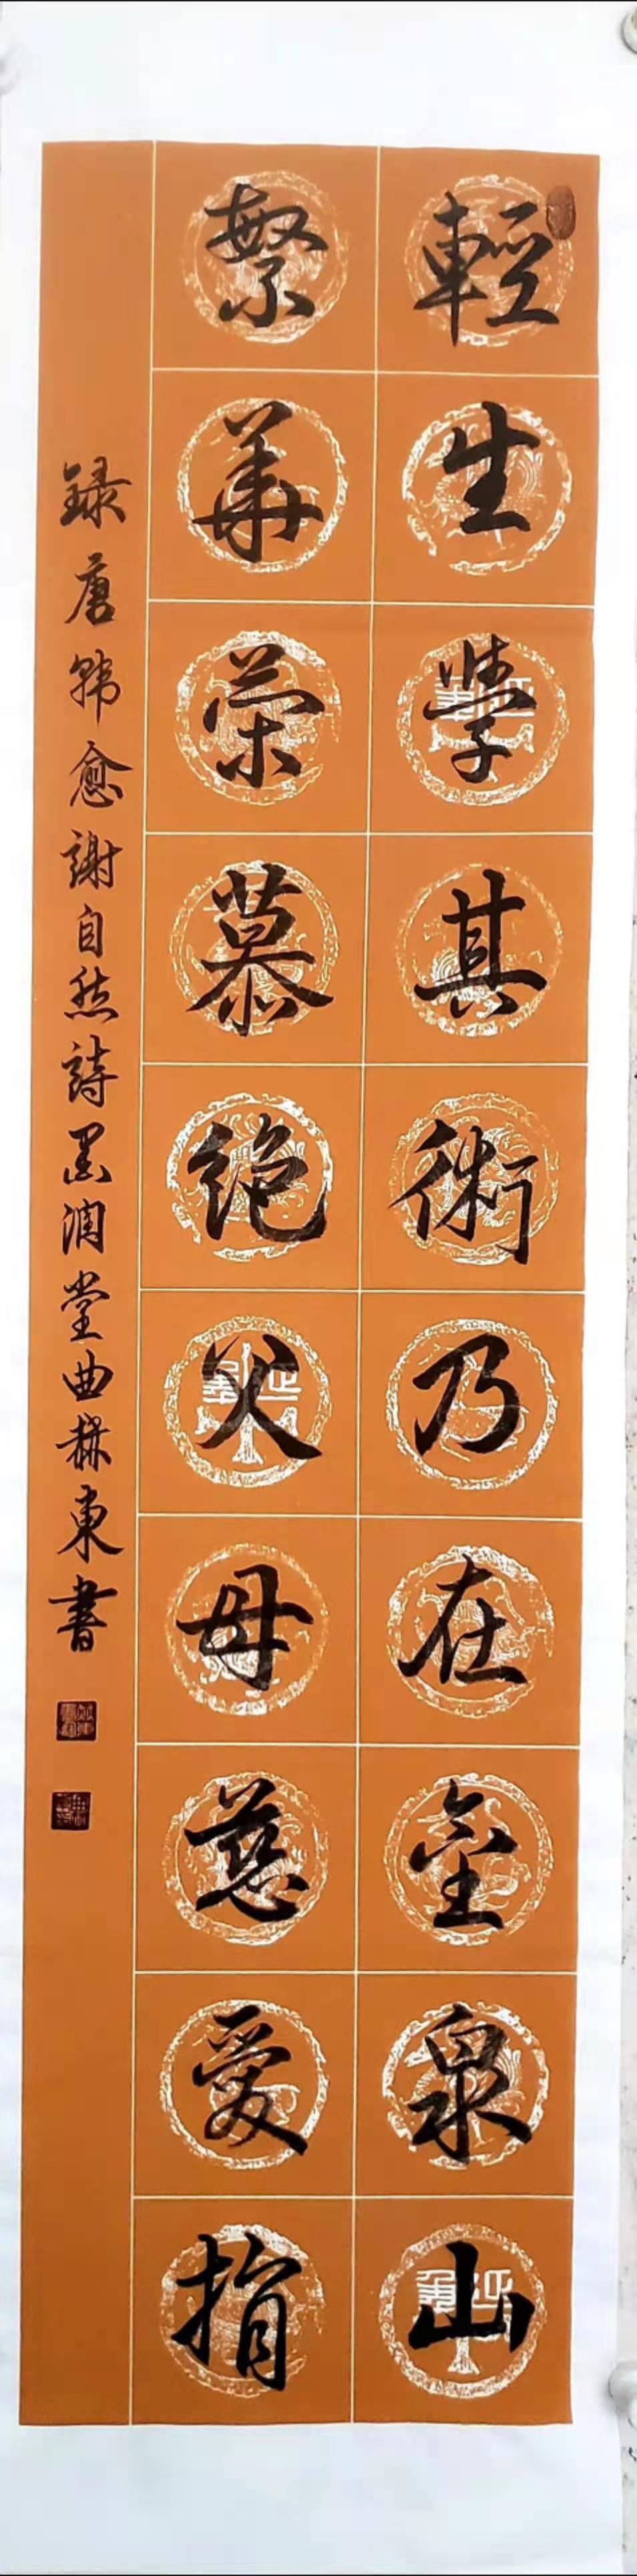 輕生學其術乃在金泉山
繁華榮慕絕父母慈愛捐
録唐韓愈謝自然詩墨潤堂曲赫東書